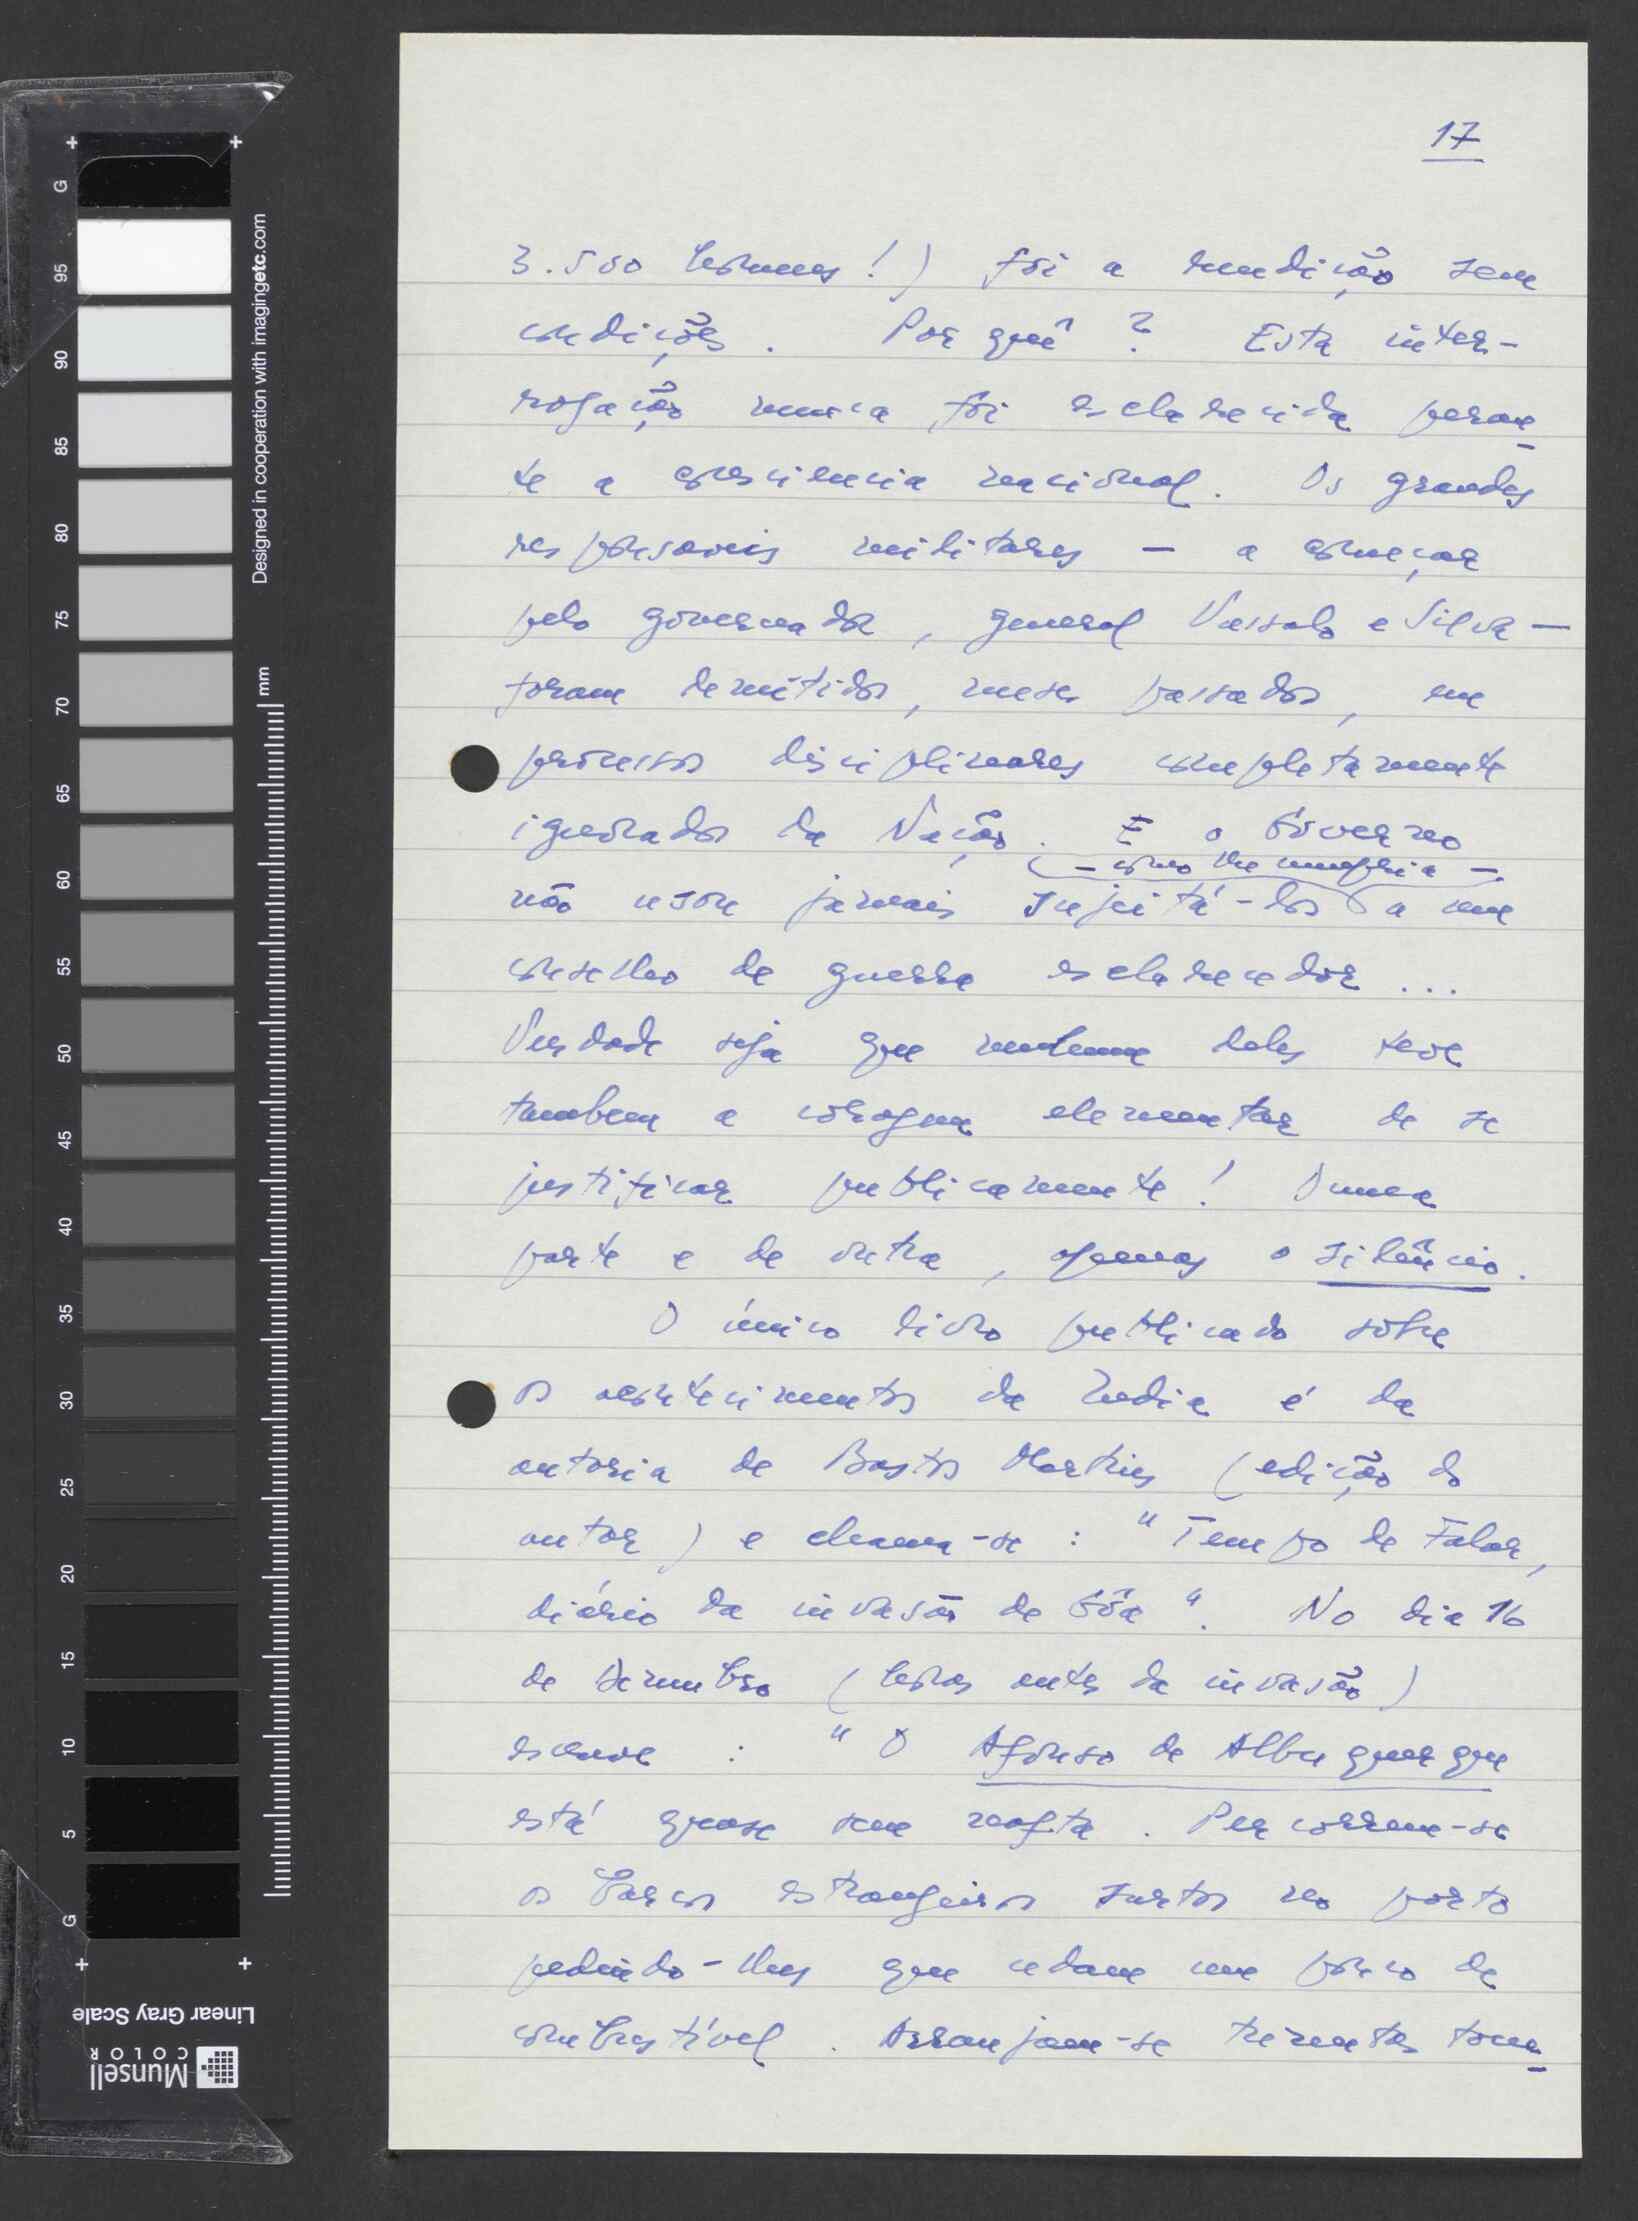 17
3.500 homens!) foi a rendição sem
condições. Por quê? Esta inter-
rogação nunca foi esclarecida peran-
te a consciencia nacional. Os grandes
responsaveis militares — a começar
pelo governador, general Vassalo e Silva —
foram demitidos, meses passados, em
processos disciplinares completamente
ignorados da Nação. E o Governo
— como lhe cumpria —
não usou jamais sujeitá-los a um
conselho de guerra esclarecedor ...
Verdade seja que nenhum deles teve
tambem a coragem elementar de se
justificar publicamente! Duma
parte e de outra, apenas o silêncio.
O único livro publicado sôbre
os acontecimentos da India é da
autoria de Bastos Martins (edição do
autor) e chama-se: "Tempo de Falar,
diário da invasão de Gôa". No dia 16
de Dezembro (horas antes da invasão)
escreve: "O Afonso de Albuquerque
está quase sem nafta. Percorrem-se
os barcos estrangeiros surtos no porto
pedindo-lhes que cedam um pouco de
combustível. Arranjam-se trezentas tone-
G
95
90
85
80
75
70
65
60
55
50
45
40
35
30
25
20
15
10
5
G
mm
Designed in cooperation with imagingetc.com
Linear Gray Scale
Munsell
COLOR